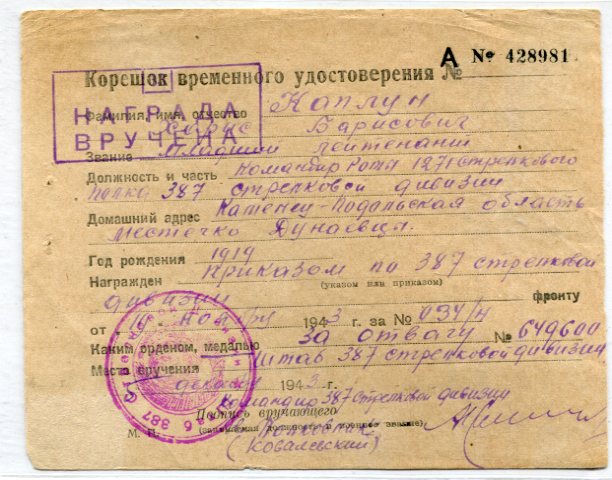 А № 428981
Корешок временного удостоверения №
НАГРАДА
ВРУЧЕНА
Каплун
Фамилия, имя, отчество
Барисович
Звание Младший лейтенант
Должность и часть Командир роты 1271 стрелкового
полка 387 стрелковой дивизии
Домашний адрес Каменец-Подольская область
местечко Дунаевцы.
Год рождения 1919
Награжден приказом по 387 стрелковой
(указом или приказом)
дивизии фронту
от 1943 г. за № 094/н
Каким орденом, медалью за отвагу № 649600
Место вручения штаб 387 стрелковой дивизии
1943 г.
Командир 387 стрелковой дивизии
Подпись вручающего
М. П. (занимаемая должность и военное звание)
(Ковалевский)